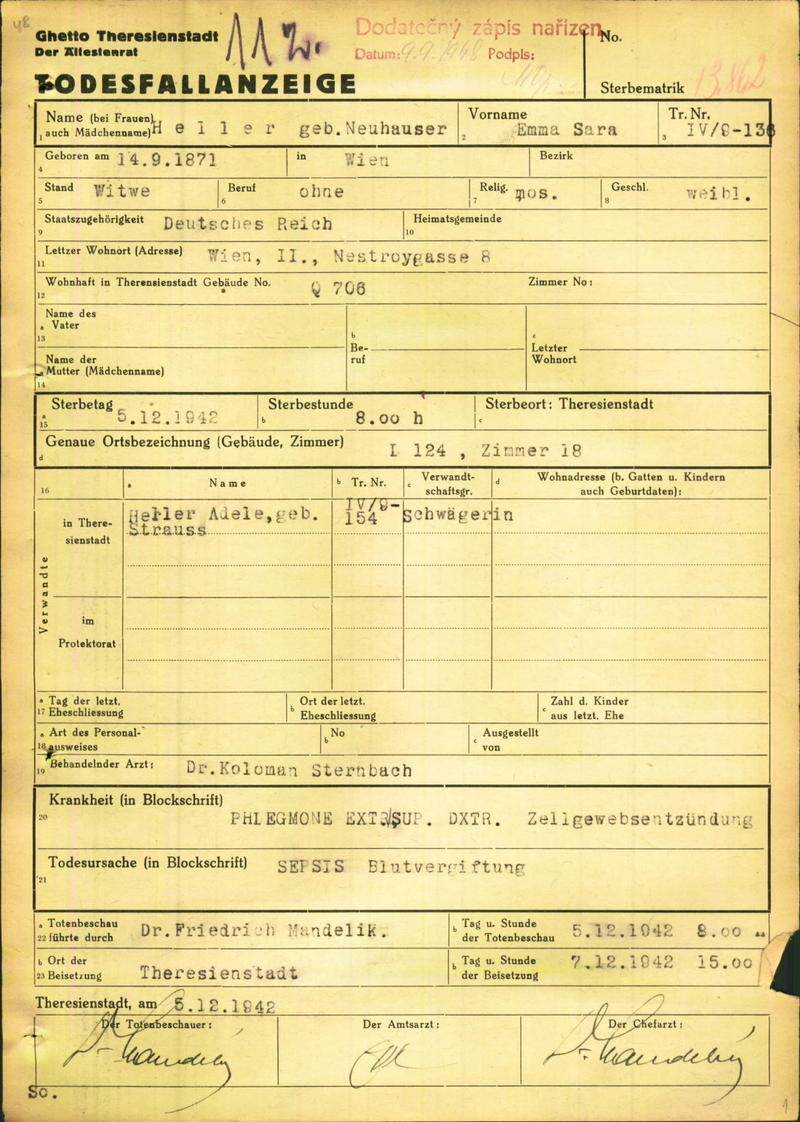 48
Ghetto Theresienstadt
Der Ältestenrat
Dodatečný zápis nařízen
Datum: 9.9.1948 Podpis:
No.
TODESFALLANZEIGE
Sterbematrik 13.862
Name (bei Frauen auch Mädchenname) Heller geb.Neuhauser
1
Vorname Emma Sara
2
Tr. Nr. IV/9-136
3
Geboren am 14.9.1871 in Wien Bezirk
4
Stand Witwe Beruf ohne Relig. mos. Geschl. weibl.
5 6 7 8
Staatszugehörigkeit Deutsches Reich Heimatsgemeinde
9 10
Lettzer Wohnort (Adresse) Wien, II., Nestroygasse 8
11
Wohnhaft in Therensienstadt Gebäude No. Q 706 Zimmer No:
12
Name des Vater
a
13
Name der Mutter (Mädchenname)
14
b
Be-
ruf
c
Letzter
Wohnort
Sterbetag 5.12.1942 Sterbestunde 8.00 h Sterbeort: Theresienstadt
a 15 b c
Genaue Ortsbezeichnung (Gebäude, Zimmer) L 124 , Zimmer 18
d
16 a Name b Tr. Nr. c Verwandt-
schaftsgr. d Wohnadresse (b. Gatten u. Kindern
auch Geburtdaten):
Verwandte
in There-
sienstadt
Heller Adele,geb.
Strauss
IV/9-
154
Schwägerin
im
Protektorat
a Tag der letzt.
17 Eheschliessung
b Ort der letzt.
Eheschliessung
c Zahl d. Kinder
aus letzt. Ehe
a Art des Personal-
18 ausweises
b No
c Ausgestellt
von
19 Behandelnder Arzt: Dr.Koloman Sternbach
Krankheit (in Blockschrift)
20 PHLEGMONE EXTR/SUP. DXTR. Zellgewebsentzündung
Todesursache (in Blockschrift) SEPSIS Blutvergiftung
21
a Totenbeschau
22 führte durch Dr.Friedrich Mandelik.
b Tag u. Stunde
der Totenbeschau 5.12.1942 8.00
b Ort der
23 Beisetzung Theresienstadt
b Tag u. Stunde
der Beisetzung 7.12.1942 15.00
Theresienstadt, am 5.12.1942
Der Totenbeschauer: Der Amtsarzt: Der Chefarzt:
So.
1